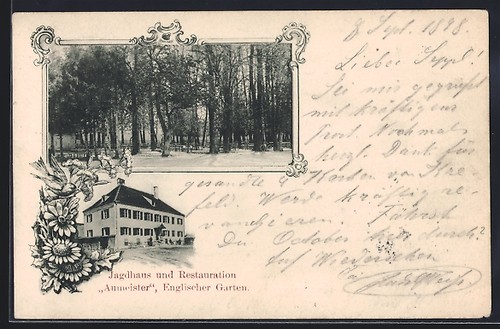 8 Sept. 1898.
Lieber Seppl!
Sei mir gegrüßt
mit kräftigem
Prost. Nochmals
herzl. Dank für
gesandte Karten von Kre-
feld. Werde kräftig re-
vanchieren. Fährst
Du October hier durch?
Auf Wiedersehen
Jagdhaus und Restauration
„Aumeister“, Englischer Garten.